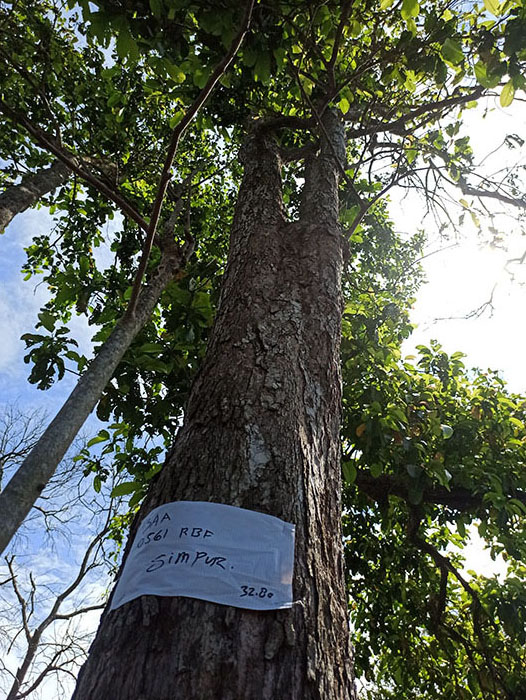 BAA
0561 RBF
SIMPUR.
32.80